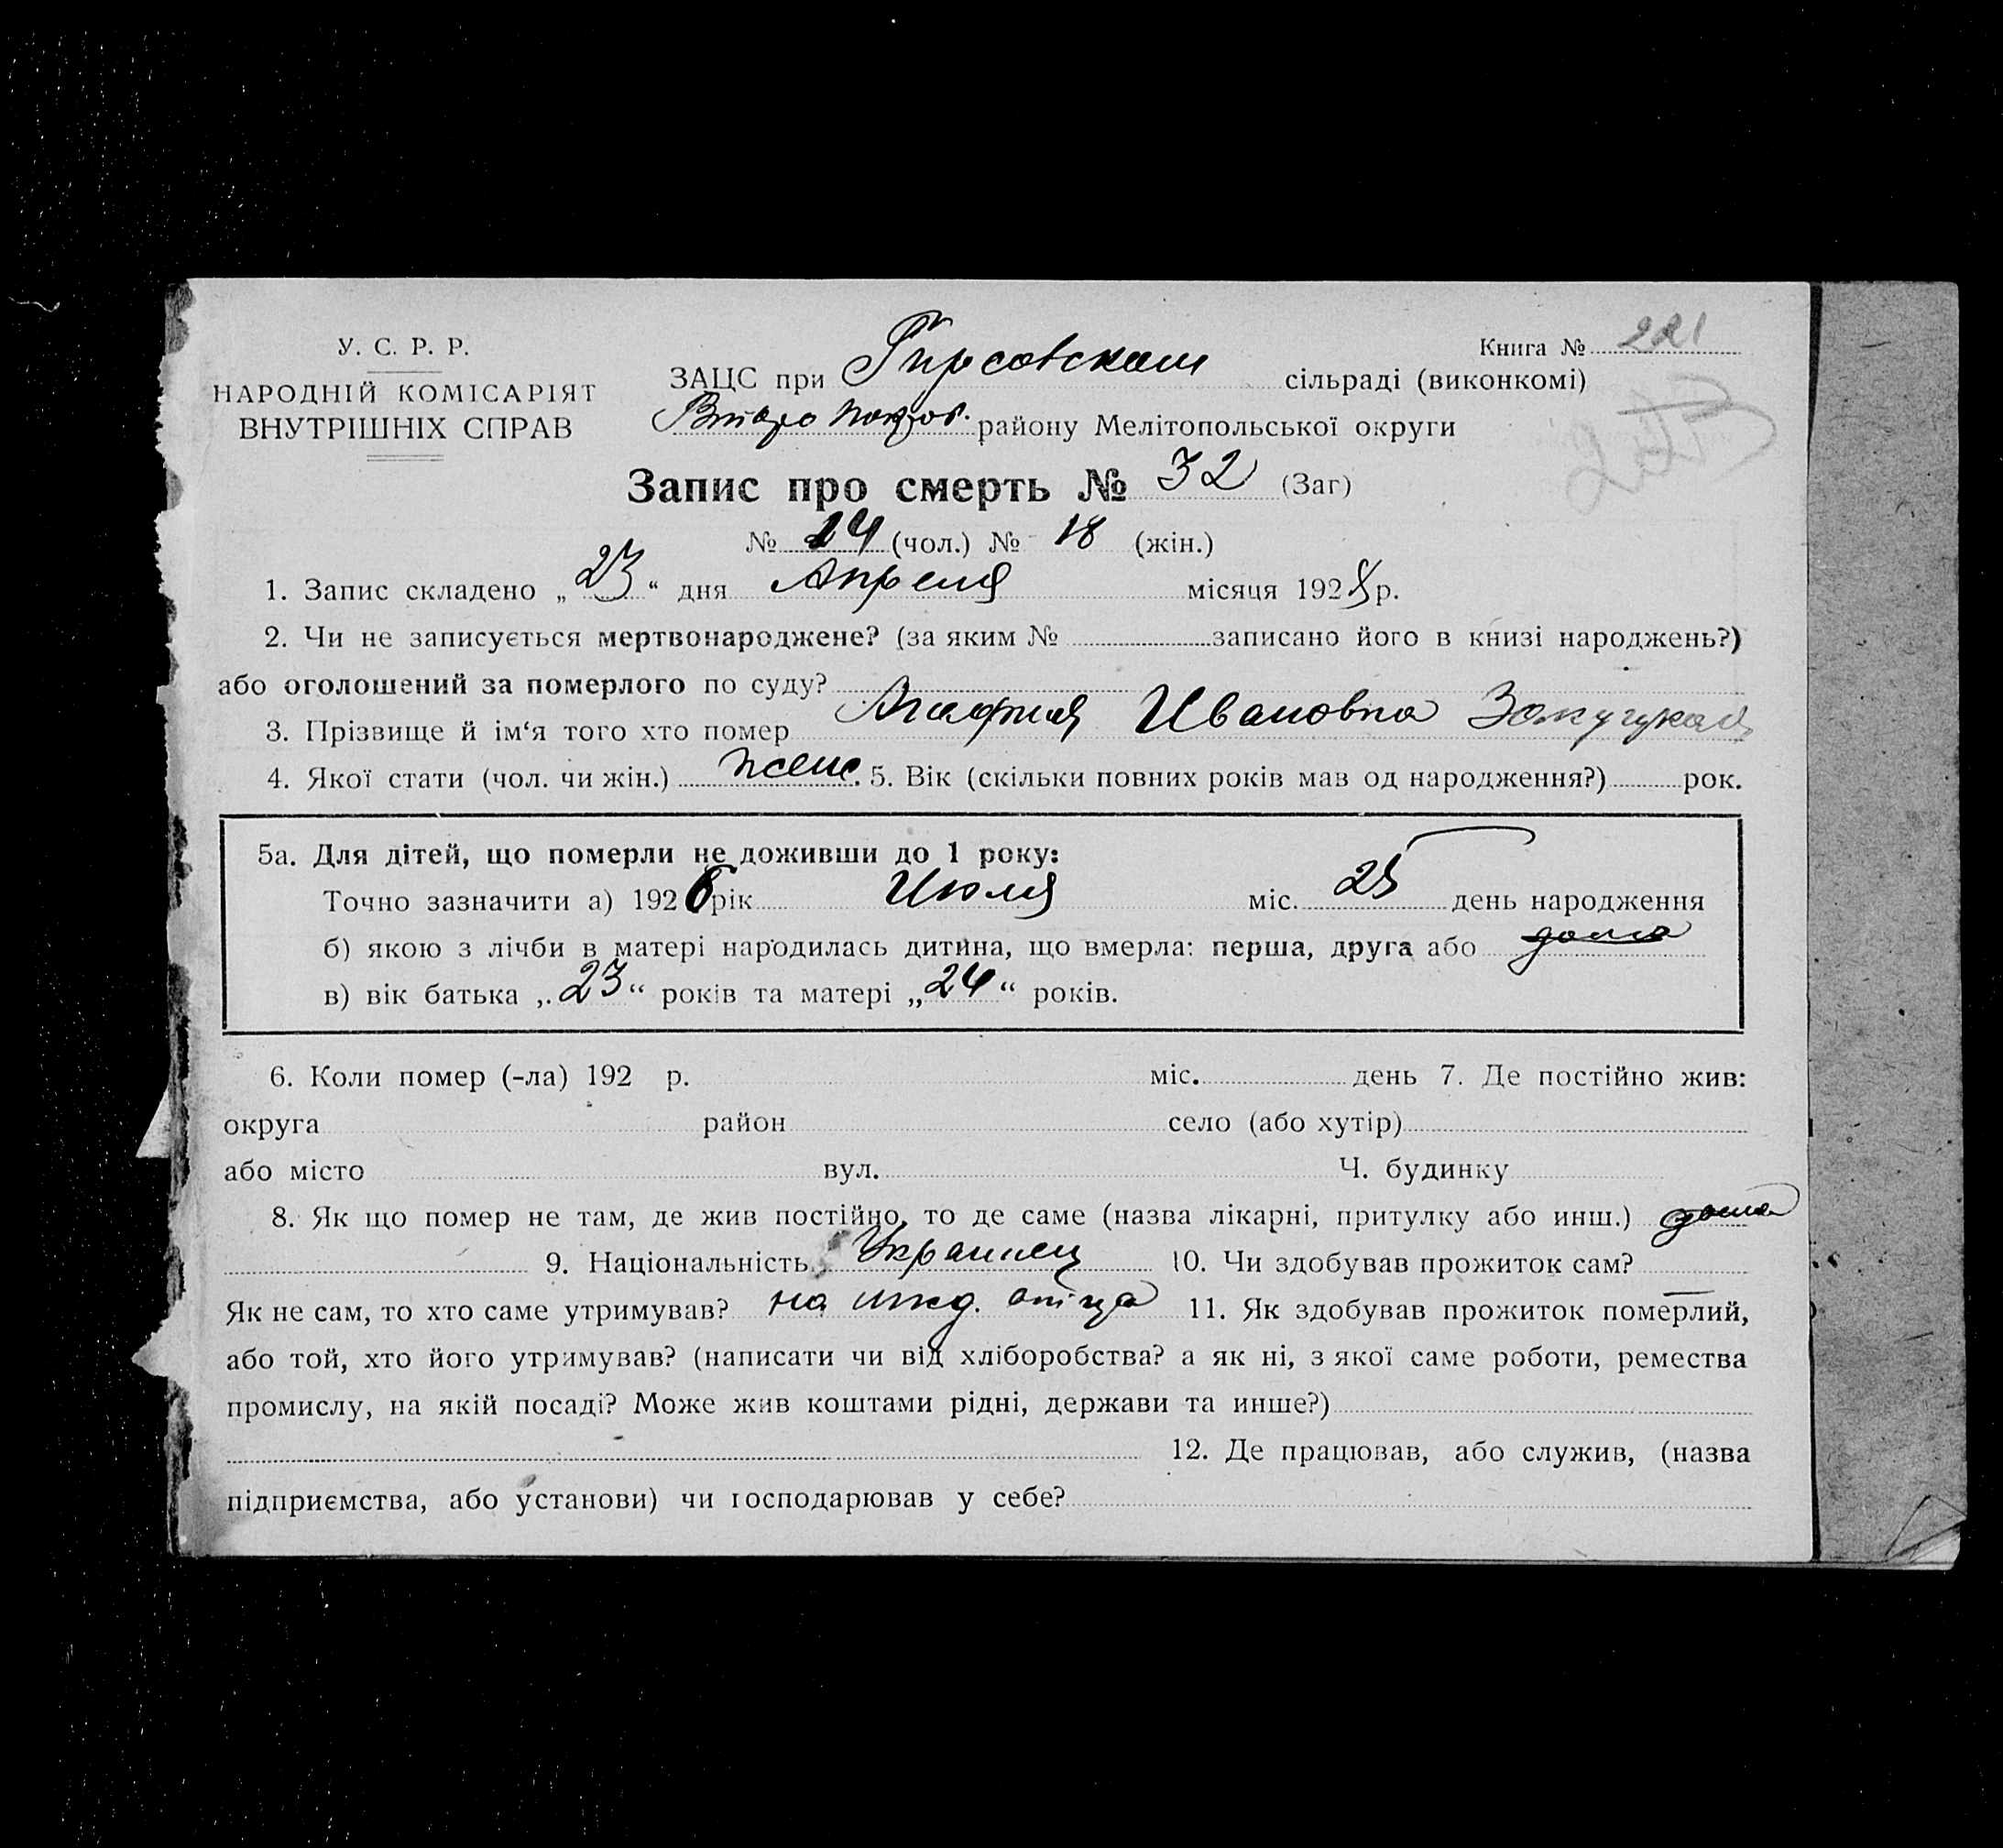 У. С. Р. Р.
НАРОДНІЙ КОМІСАРІЯТ
ВНУТРІШНІХ СПРАВ
Книга № 221
ЗАЦС при Гирсовском сільраді (виконкомі)
Втиро Покров. району Мелітопольської округи
Запис про смерть № 32 (Заг)
№ 14 (чол.) № 18 (жін.)
1. Запис складено „ 23 “ дня Апреля місяця 1928 р.
2. Чи не записується мертвонароджене? (за яким № записано його в книзі народжень?)
або оголошений за померлого по суду?
3. Прізвище й ім‘я того хто помер Агафия Ивановна
4. Якої стати (чол. чи жін.) женс. 5. Вік (скільки повних років мав од народження?) рок.
5а. Для дітей, що померли не доживши до 1 року:
Точно зазначити а) 1926 рік Июля міс. 25 день народження
б) якою з лічби в матері народилась дитина, що вмерла: перша, друга або дома
в) вік батька „ 23 “ років та матері „ 24 “ років.
6. Коли помер (-ла) 192 р. міс. день 7. Де постійно жив:
округа район село (або хутір)
або місто вул. Ч. будинку
8. Як що помер не там, де жив постійно, то де саме (назва лікарні, притулку або инш.) дома
9. Національність Украинец 10. Чи здобував прожиток сам?
Як не сам, то хто саме утримував? на ижд. отца 11. Як здобував прожиток померлий,
або той, хто його утримував? (написати чи від хліборобства? а як ні, з якої саме роботи, ремества
промислу, на якій посаді? Може жив коштами рідні, держави та инше?)
12. Де працював, або служив, (назва
підприємства, або установи) чи господарював у себе?